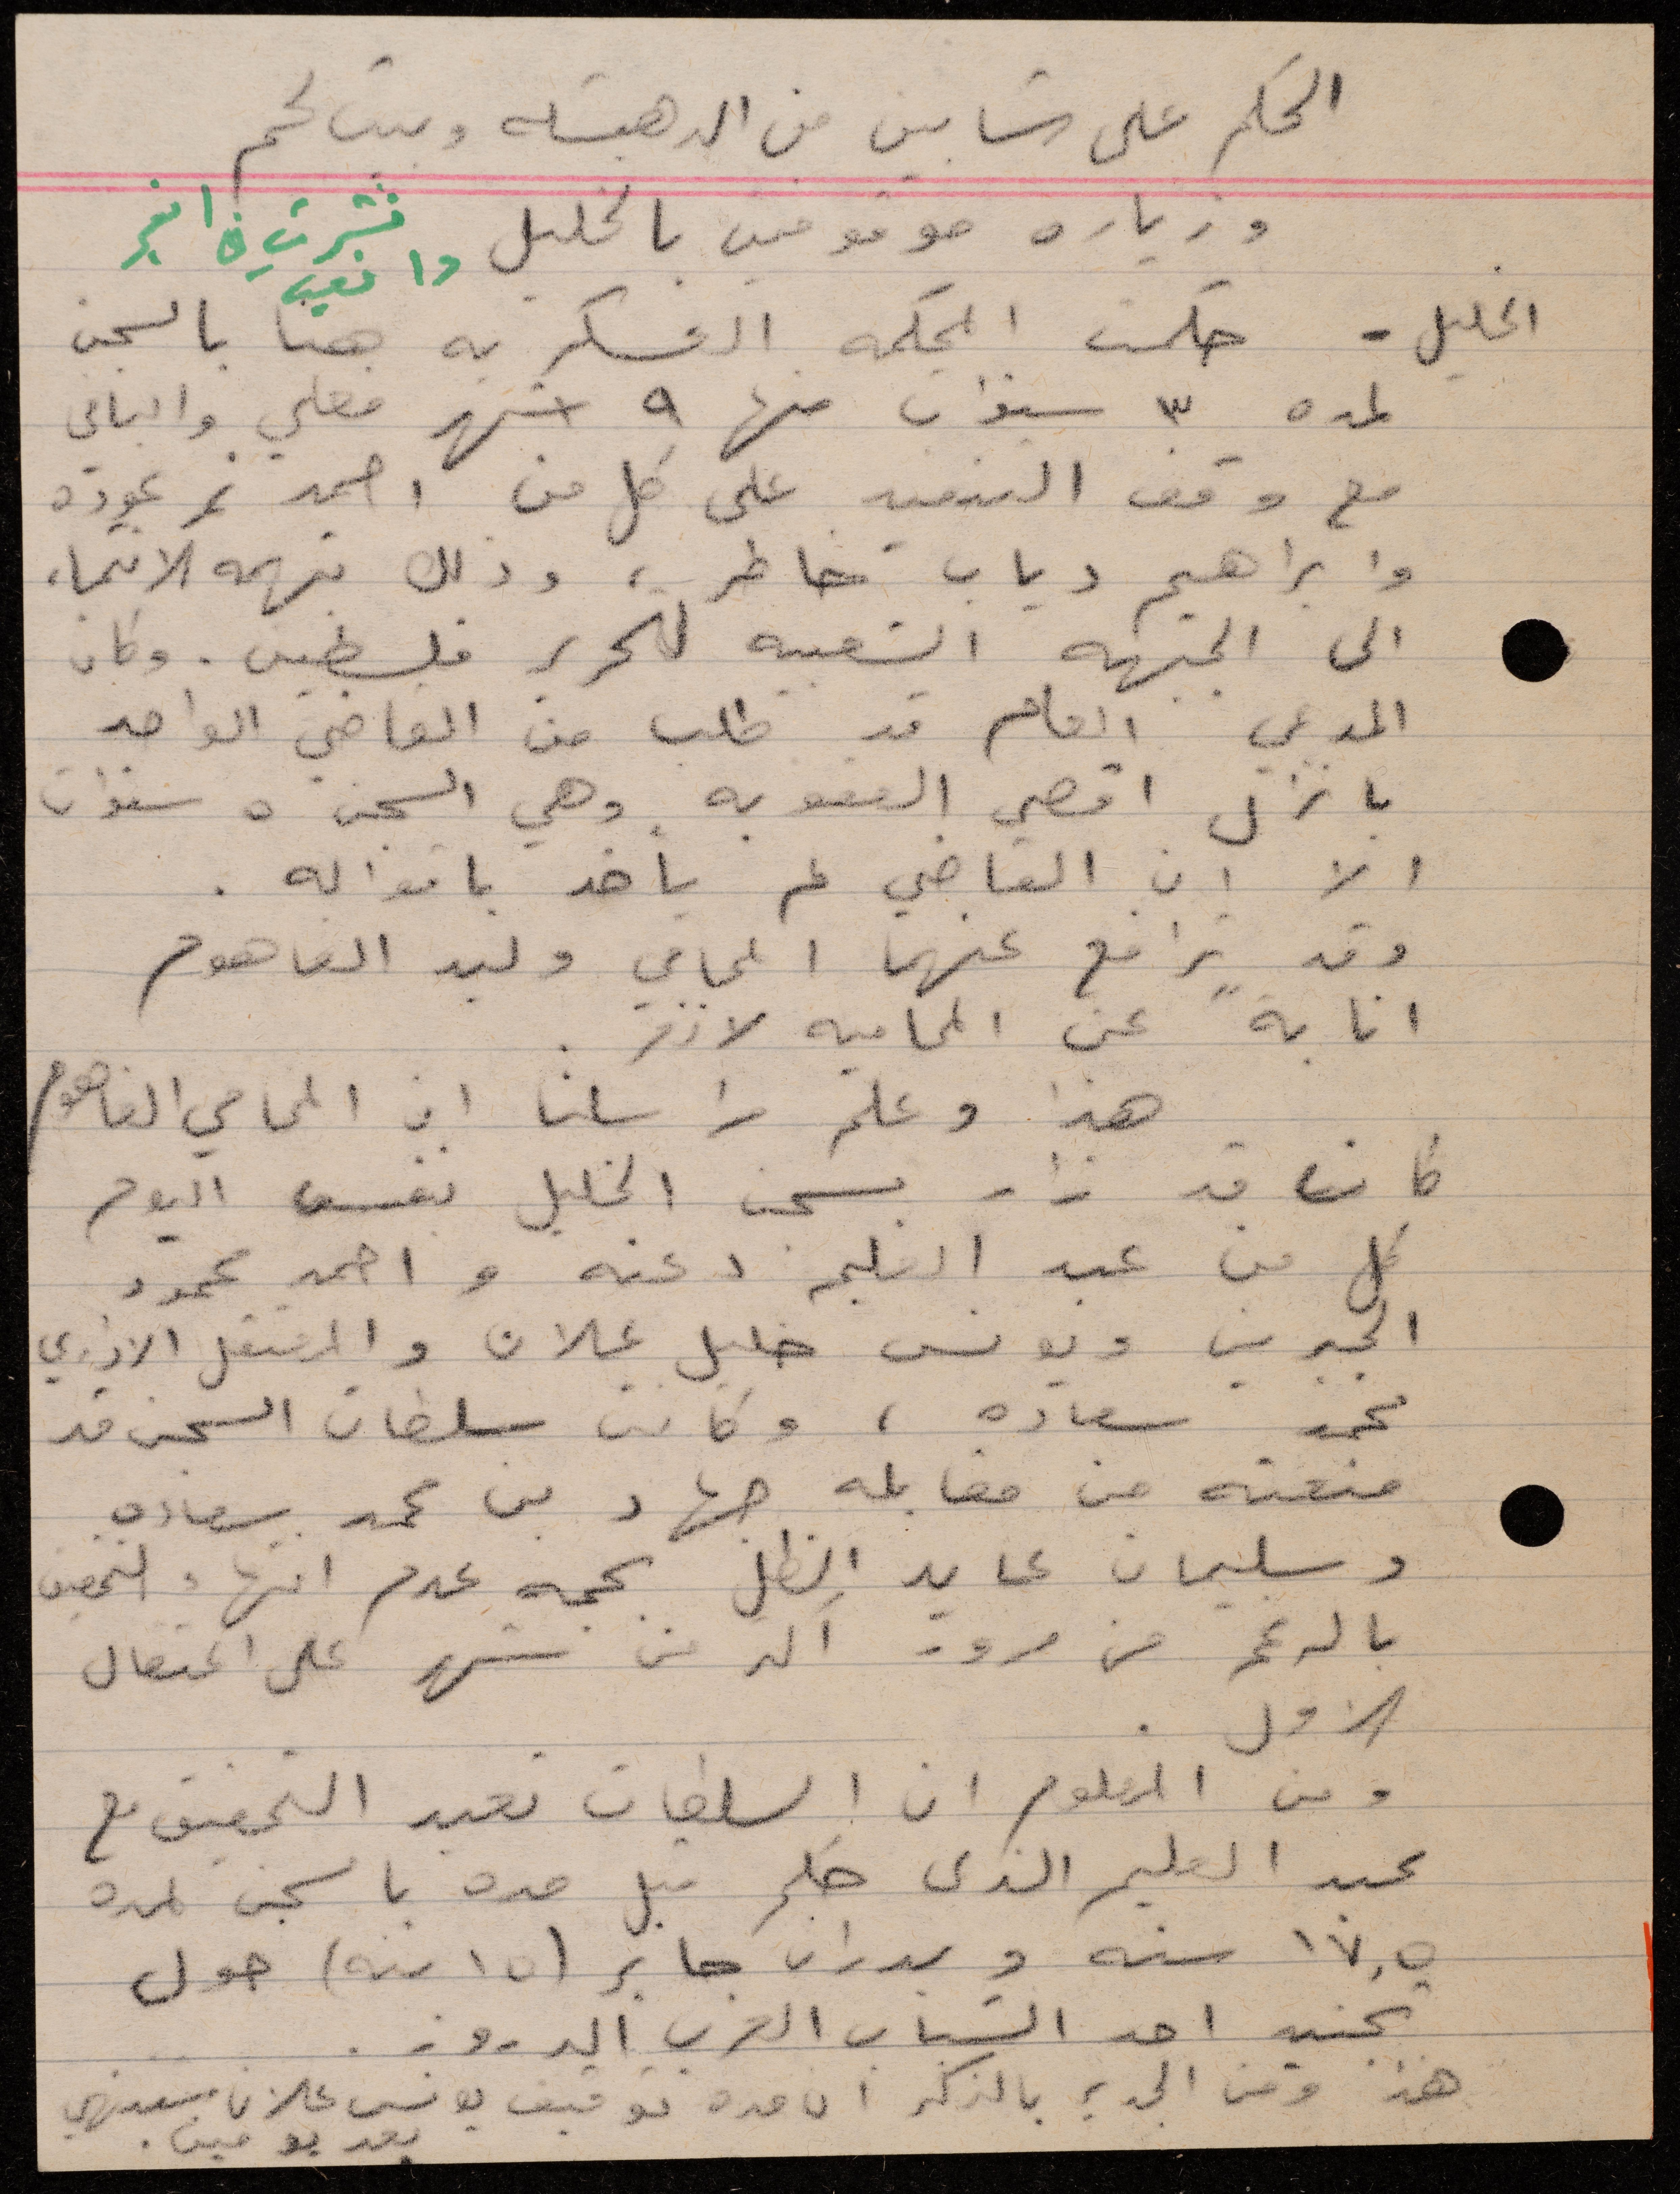 الحكم على شابين من الدهيشه وبيت لحم
وزياره موقوفين بالخليل
نشرت في الفجر
الخليل - حكمت المحكمه العسكريه هنا بالسجن
لمده ٣ سنوات منها ٩ اشهر فعلي والباقي
مع وقف التنفيذ على كل من احمد نمر عوده
وابراهيم دياب خاطر، وذلك بتهمه الانتماء
الى الجبهه الشعبيه لتحرير فلسطين. وكان
المدعي العام قد طلب من القاضي الواحد
بانزال اقصى العقوبه وهي السجن ٥ سنوات
الا ان القاضي لم يأخذ باقواله.
وقد ترافع عنهما المحامي وليد الفاهوم
انابةً عن المحاميه لانغر.
هذا وعلم مراسلنا ان المحامي الفاهوم
كان قد زار بسجن الخليل نفس اليوم
كل من عبد العليم دعنه و احمد محمود
الجبرين ويونس خليل علان والمعتقل الاداري
محمد سعاده، وكانت سلطات السجن قد
منعته من مقابله جهاد بن محمد سعاده
وسليمان عايد الظل بحجه عدم انتهاء التحقيق
بالرغم من مرور اكثر من شهر على اعتقال
الاول.
ومن المعلوم ان السلطات تعيد التحقيق مع
عبد العليم الذي حكم قبل مده بالسجن لمده
١٧,٥ سنه و بدران جابر (١٥ سنه) حول
تجنيد احد الشباب العرب الدروز.
هذا ومن الجدير بالذكر ان مده توقيف يونس علان ستنتهي
بعد يومين.